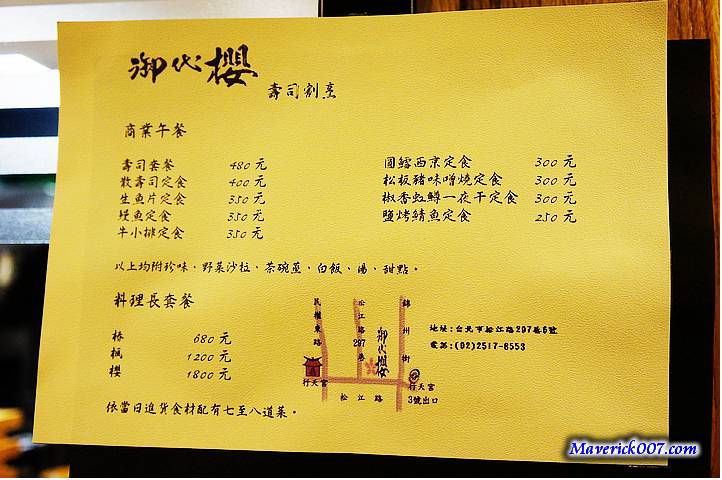 御代櫻
壽司割烹
商業午餐
壽司套餐 480元
散壽司定食 400元
生魚片定食 350元
鰻魚定食 350元
牛小排定食 350元
圓鱈西京定食 300元
松板豬味噌燒定食 300元
椒香虹鱒一夜干定食 300元
鹽烤鯖魚定食 250元
以上均附珍味、野菜沙拉、茶碗蒸、白飯、湯、甜點。
料理長套餐
椿 680元
楓 1200元
櫻 1800元
依當日進貨食材配有七至八道菜。
民權東路
松江路297巷
御代櫻
錦州街
行天宮
松江路
行天宮
3號出口
地址:台北市松江路297巷6號
電話:(02)2517-8553
Maverick007.com